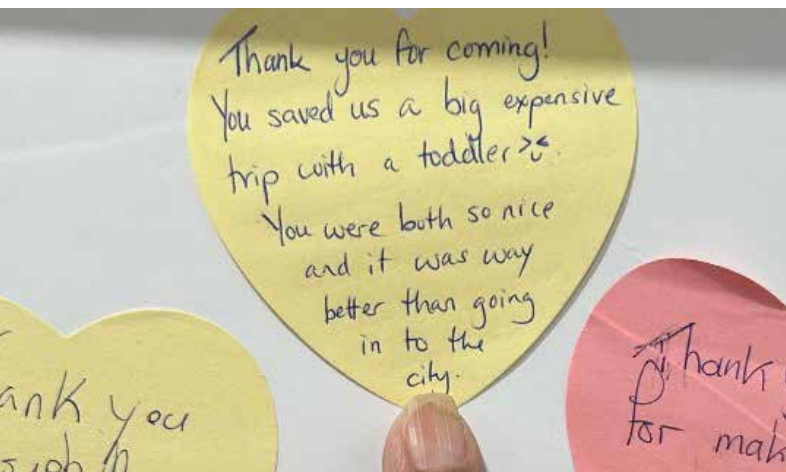 Thank you for coming!
You saved us a big expensive
trip with a toddler
You were both so nice
and it was way
better than going
in to the
city.
you
Thank
for